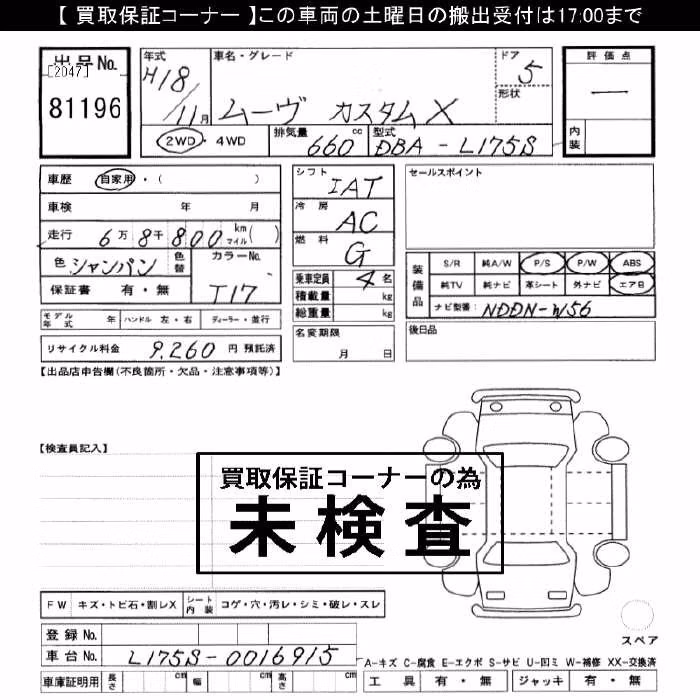 【 買取保証コーナー 】この車両の土曜日の搬出受付は17:00まで
出品No. [2047] 81196
年式 H18/11月
車名・グレード ムーヴ カスタムX
ドア 5
形状
2WD・4WD
排気量 660cc
型式 DBA-L175S
評価点 一
内装
車歴 自家用・( )
車検 年 月
走行 6万8千800km(マイル)( )
色 シャンパン 色替 カラーNo. T17
保証書 有・無
シフト IAT
冷房 AC
燃料 G
乗車定員 4名
積載量 kg
総重量 kg
セールスポイント
装備品
S/R 純A/W P/S P/W ABS
純TV 純ナビ 革シート 外ナビ エアB
ナビ型番: NDDN-W56
モデル年式 年 ハンドル 左・右 ディーラー・並行
リサイクル料金 9,260 円 預託済
名変期限 月 日
後日品
【出品店申告欄(不良箇所・欠品・注意事項等)】
【検査員記入】
買取保証コーナーの為
未検査
FW キズ・トビ石・割レX シート内装 コゲ・穴・汚レ・シミ・破レ・スレ
スペア
登録No.
車台No. L175S-0016915
A-キズ C-腐食 E-エクボ S-サビ U-凹ミ W-補修 XX-交換済
車庫証明用 長さ cm 幅 cm 高さ cm
工具 有・無 ジャッキ 有・無